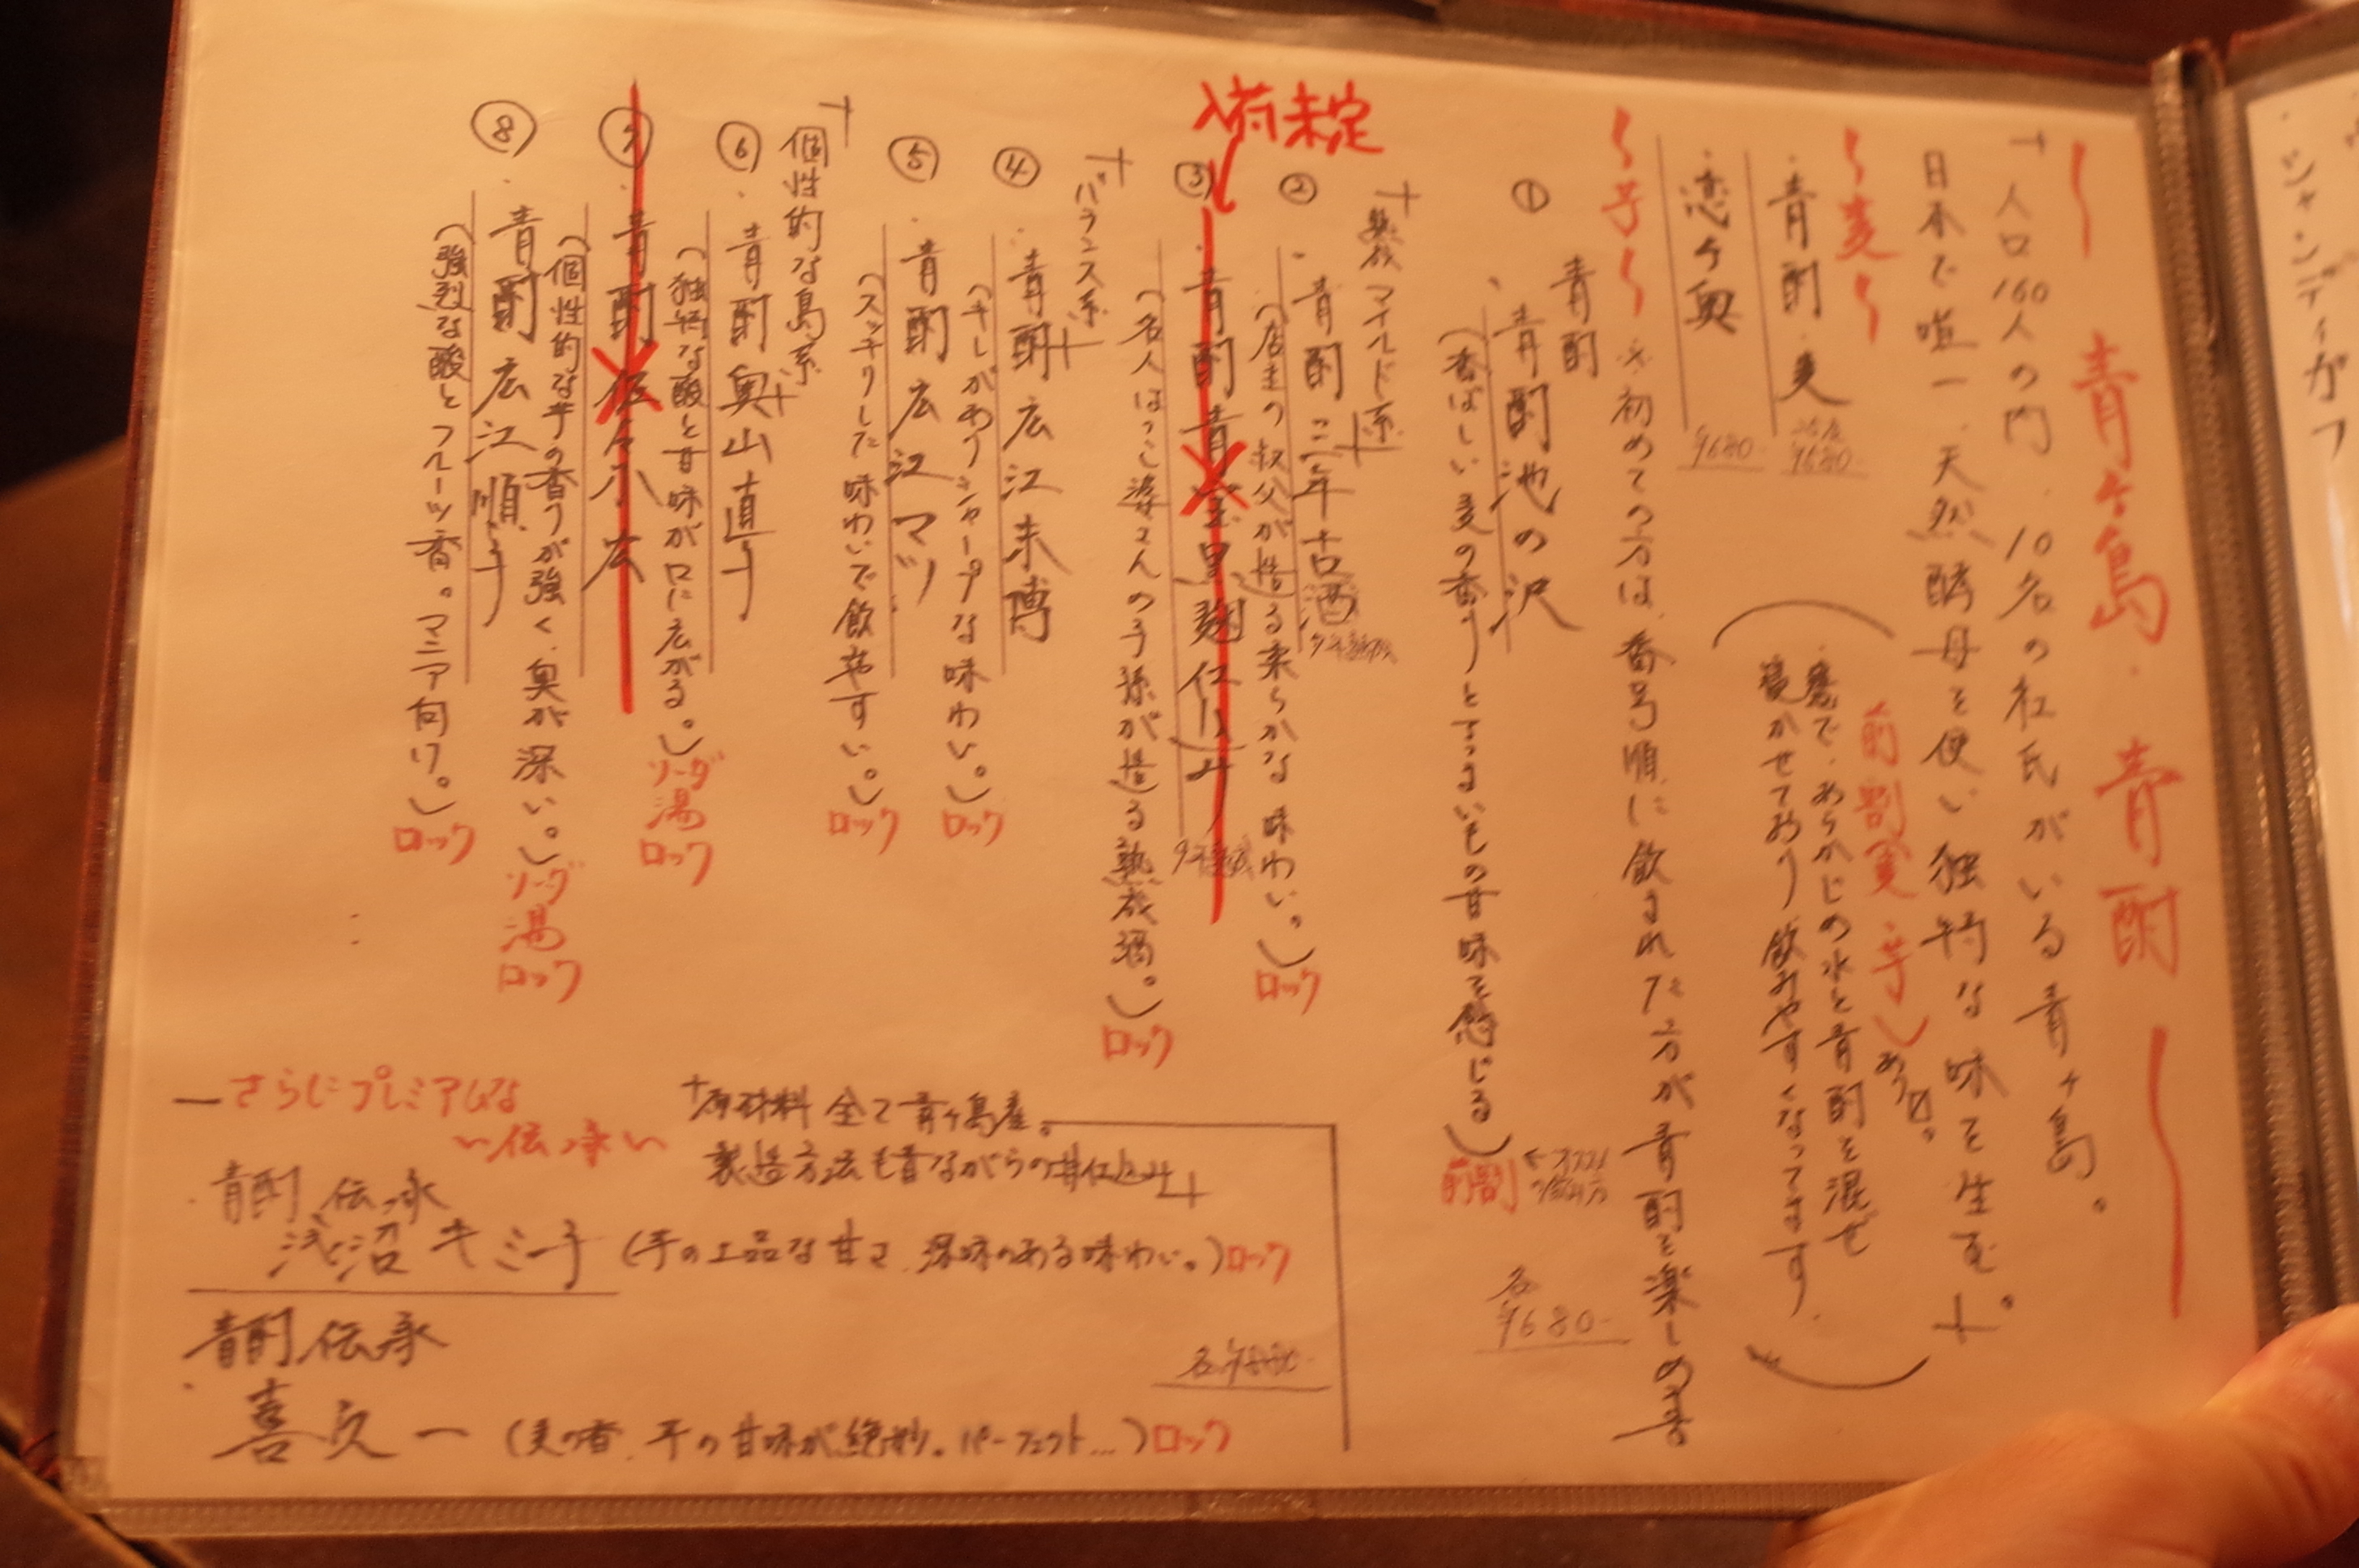 〜 青ヶ島・青酎 〜
人口160人の内、10名の杜氏がいる青ヶ島。
日本で唯一、天然酵母を使い独特な味を生む。
〜麦〜
前割 麦・芋 あり〼。
(甕で、あらかじめ水と青酎を混ぜ
寝かせており飲みやすくなってます)
・青酎・麦 ¥680
・恋ケ奥 ¥680-
〜芋〜
※初めての方は、番号順に飲まれた方が青酎を楽しめます
青酎
① ・青酎 池の沢
(香ばしい麦の香りとさつまいもの甘味を感じる)
前割 ←オススメの飲み方
各¥680-
熟成マイルド系
② ・青酎 三年古酒
(店主の叔父が造る柔らかな味わい。)ロック
入荷未定
③ ・青酎 青宝 黒麹仕込み
(名人ひろこ婆さんの子孫が造る熟成酒。)ロック
バランス系
④ ・青酎 広江末博
(キレがありシャープな味わい。)ロック
⑤ ・青酎 広江マツ
(スッキリした味わいで飲みやすい。)ロック
個性的な島系
⑥ ・青酎 奥山直子
(独特な酸と甘味が口に広がる。)ソーダ 湯 ロック
⑦ ・青酎 佐々木 広
(個性的な芋の香りが強く、奥が深い。)ソーダ 湯 ロック
⑧ ・青酎 広江順子
(強烈な酸とフルーツ香。マニア向け。)ロック
さらにプレミアムな
〜伝承〜
原材料 全て青ヶ島産。
製造方法も昔ながらの丼仕込み
・青酎 伝承
浅沼キミ子 (芋の上品な甘さ、深味のある味わい。)ロック
・青酎 伝承
喜久一 (麦の香、芋の甘味が絶妙。パーフェクト…)ロック
シャンディガフ